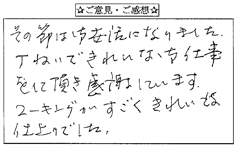 ☆ご意見・ご感想☆
その節はお世話になりました。
丁ねいできれいなお仕事
をして頂き感謝しています。
コーキングがすごくきれいな
仕上りでした。